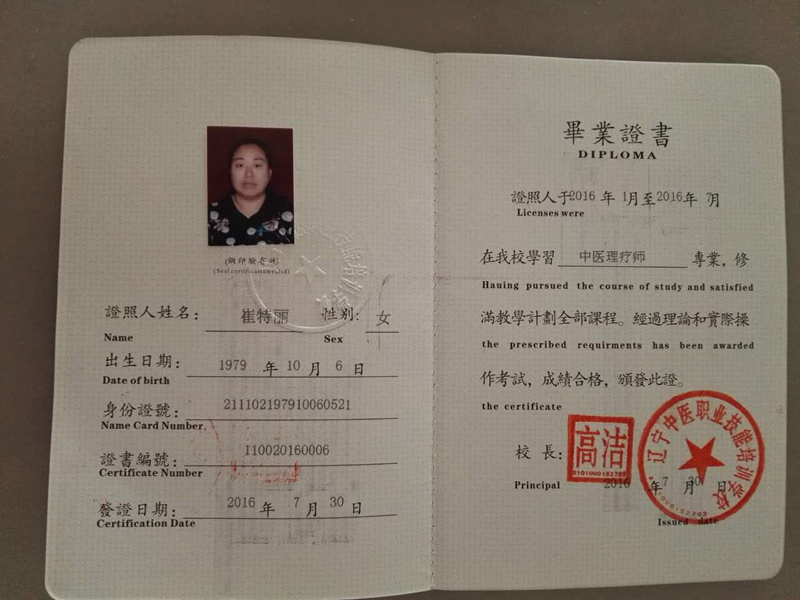 (鋼印驗存效)
(Seal certification valid)
證照人姓名: 崔特丽 性别: 女
Name Sex
出生日期: 1979 年 10 月 6 日
Date of birth
身份證號: 211102197910060521
Name Card Number.
證書編號: 110020160006
Certificate Number
發證日期: 2016 年 7 月 30 日
Certification Date
畢業證書
DIPLOMA
證照人于2016 年 1月至2016年 7月
Licenses were
在我校學習 中医理疗师 專業, 修
Hauing pursued the course of study and satisfied
滿教學計劃全部課程。經過理論和實際操
the prescribed requirments has been awarded
作考試, 成績合格, 頒發此證。
the certificate
校 長: 高洁
Principal 2016 年 7 月 30 日
Issued date
辽宁中医职业技能培训学校